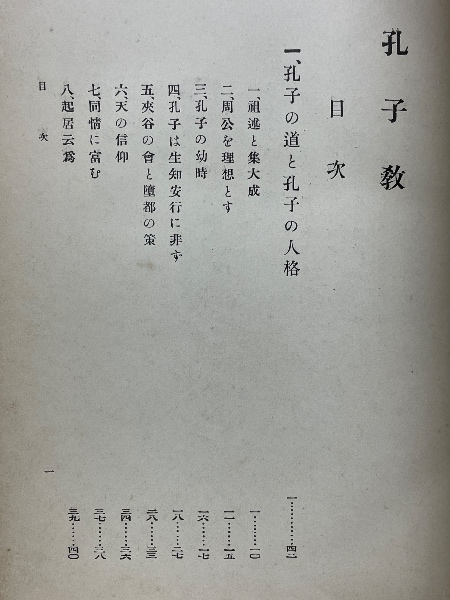 孔子教
目次
一、孔子の道と孔子の人格 一……四一
一、祖述と集大成 一……一〇
二、周公を理想とす 一一……一五
三、孔子の幼時 一六……一七
四、孔子は生知安行に非ず 一八……二七
五、夾谷の會と墮都の策 二八……三三
六、天の信仰 三四……三六
七、同情に富む 三七……三八
八、起居云爲 三九……四〇
目次
一